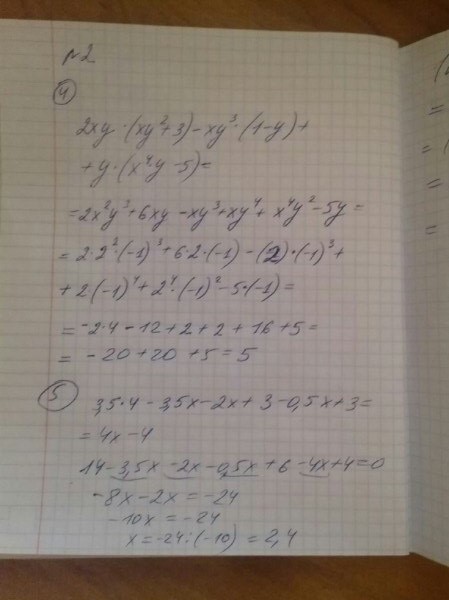 №2
4
2xy·(xy²+3)-xy³·(1-y)+
+y·(x⁴y-5)=
=2x²y³+6xy-xy³+xy⁴+x⁴y²-5y=
=2·2²·(-1)³+6·2·(-1)-(2)·(-1)³+
+2(-1)⁴+2⁴·(-1)²-5·(-1)=
=-2·4-12+2+2+16+5=
=-20+20+5=5
5
3,5·4-3,5x-2x+3-0,5x+3=
=4x-4
14-3,5x-2x-0,5x+6-4x+4=0
-8x-2x=-24
-10x=-24
x=-24:(-10)=2,4
(
=
=(
=
=